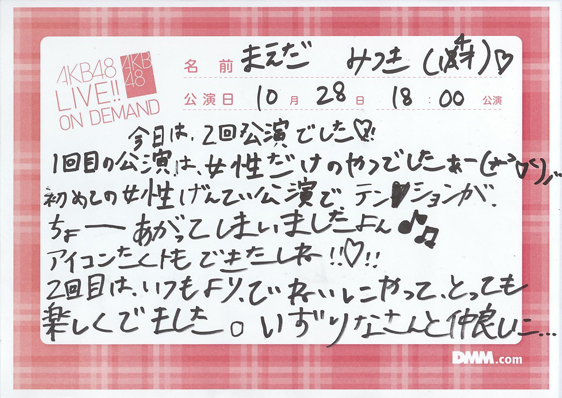 AKB48
LIVE!!
ON DEMAND
AKB
48
名前 まえだ みつき(14才)♡
公演日 10月28日 18:00公演
今日は、2回公演でした♡!!
1回目の公演は、女性だけのやつでしたぁー
初めての女性げんてい公演で、テンションが、
ちょーーあがってしまいましたよん♪♫
アイコンたくトもできたしね!!♡!!
2回目は、いつもより、ていねいにやって、とっても
楽しくできました。いずりなさんと仲良しに…
DMM.com